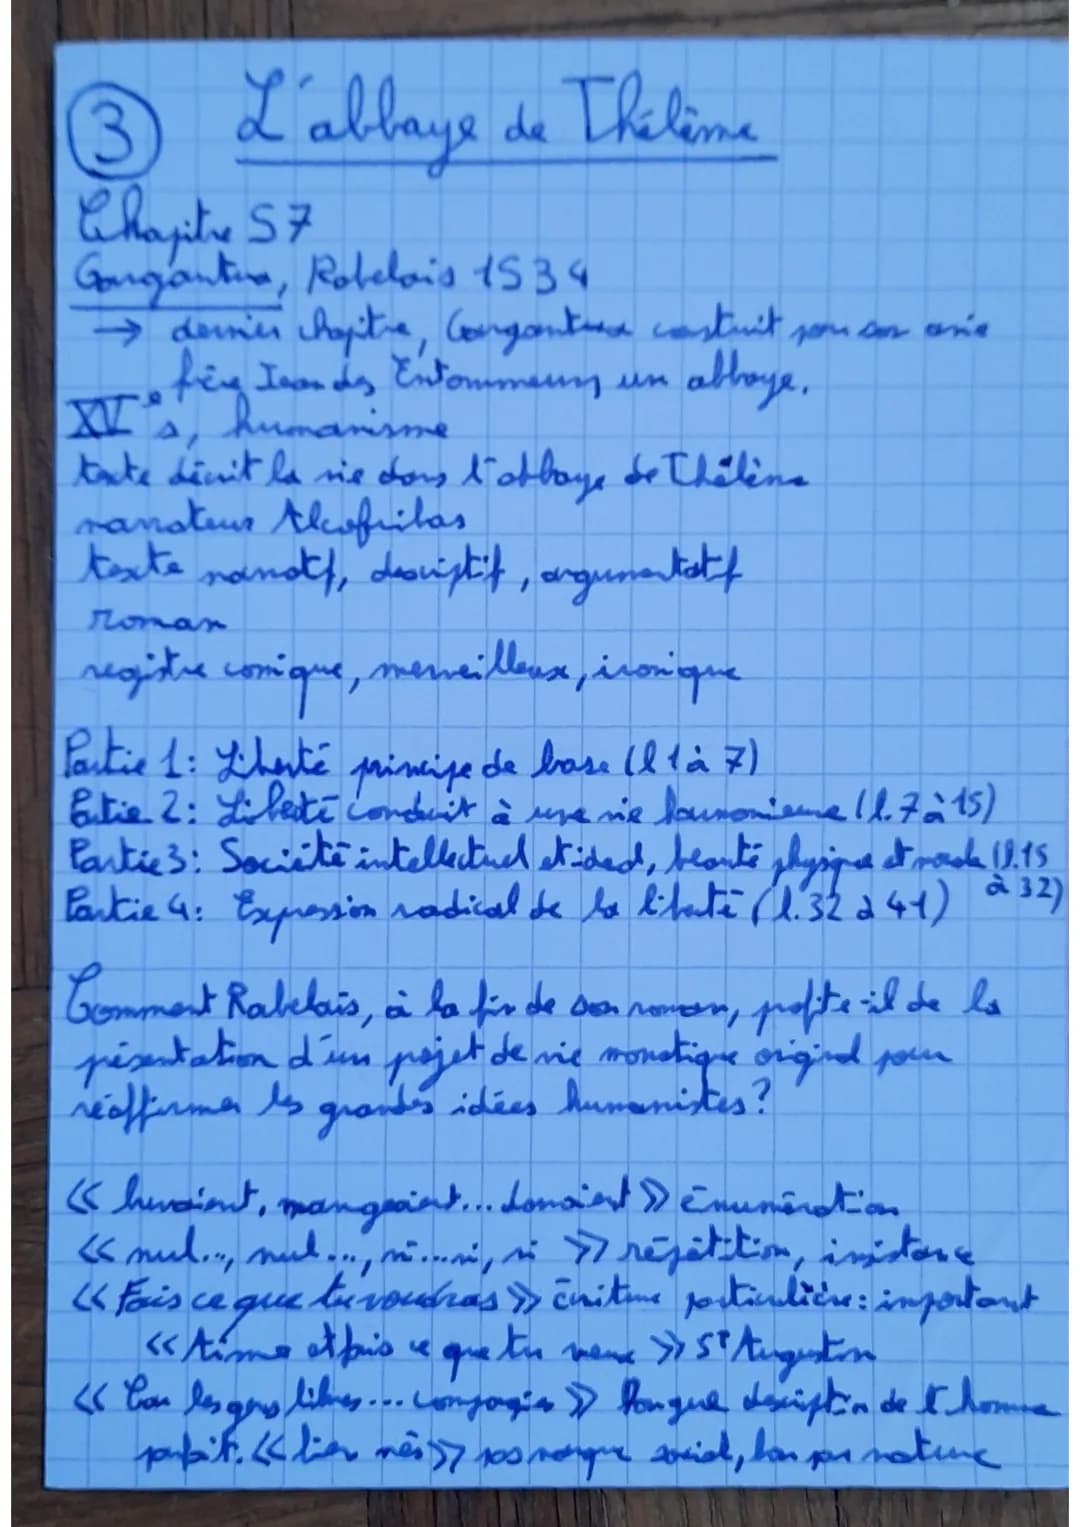 ③ L'abbaye de Thélème
Chapitre 57
Gargantua, Rabelais 1534
→ dernier chapitre, Gargantua construit pour son amie
frère Jean des Entommeurs un abbaye.
XVIe s, humanisme
texte décrit la vie dans l'abbaye de Thélème
narrateur Alcofribas
texte narratif, descriptif, argumentatif
roman
registre comique, merveilleux, ironique
Partie 1: Liberté principe de base (l 1 à 7)
Partie 2: Liberté conduit à une vie harmonieuse (l. 7 à 15)
Partie 3: Société intellectuel et idéal, beauté physique et morale (l. 15
à 32)
Partie 4: Expression radical de la liberté (l. 32 à 41)
Comment Rabelais, à la fin de son roman, profite-il de la
présentation d'un projet de vie monatique original pour
réaffirmer les grandes idées humanistes?
<< buvaient, mangeaient... dormaient >> énumération
<< nul..., nul..., ni...ni, ni >> répétition, insistance
<< Fais ce que tu voudras >> écriture particulière: important
<< Aime et fais ce que tu veux >> St Augustin
<< Car les gens libres... compagnies >> longue description de l'homme
parfait. << bien nés >> pas marque social, bon par nature